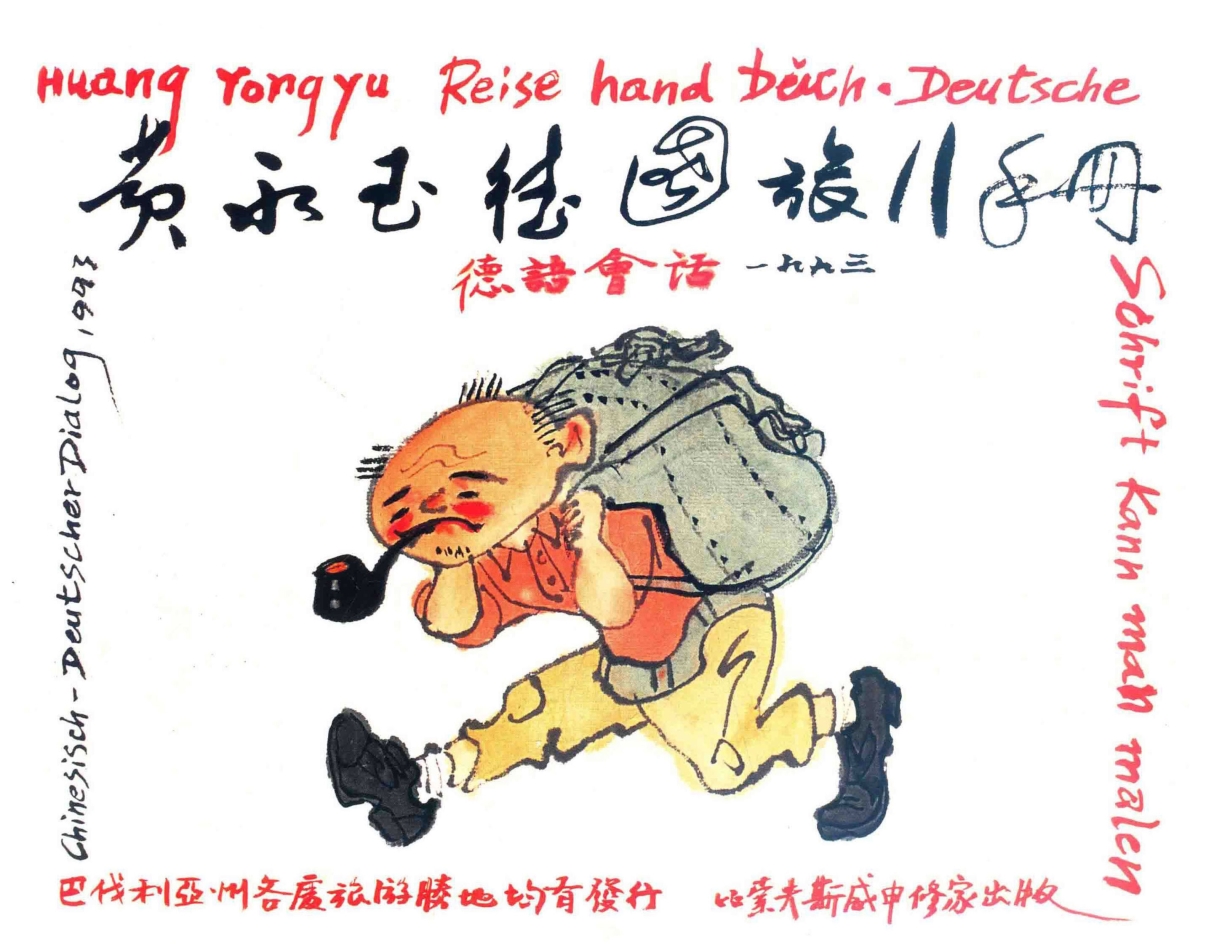 Huang Yongyu Reise hand büch. Deutsche
黄永玉德國旅行手册
德語會话 一九九三
Chinesisch-Deutscher Dialog, 1993
Schrift kann man malen
巴伐利亞州各處旅游勝地均有發行
出版